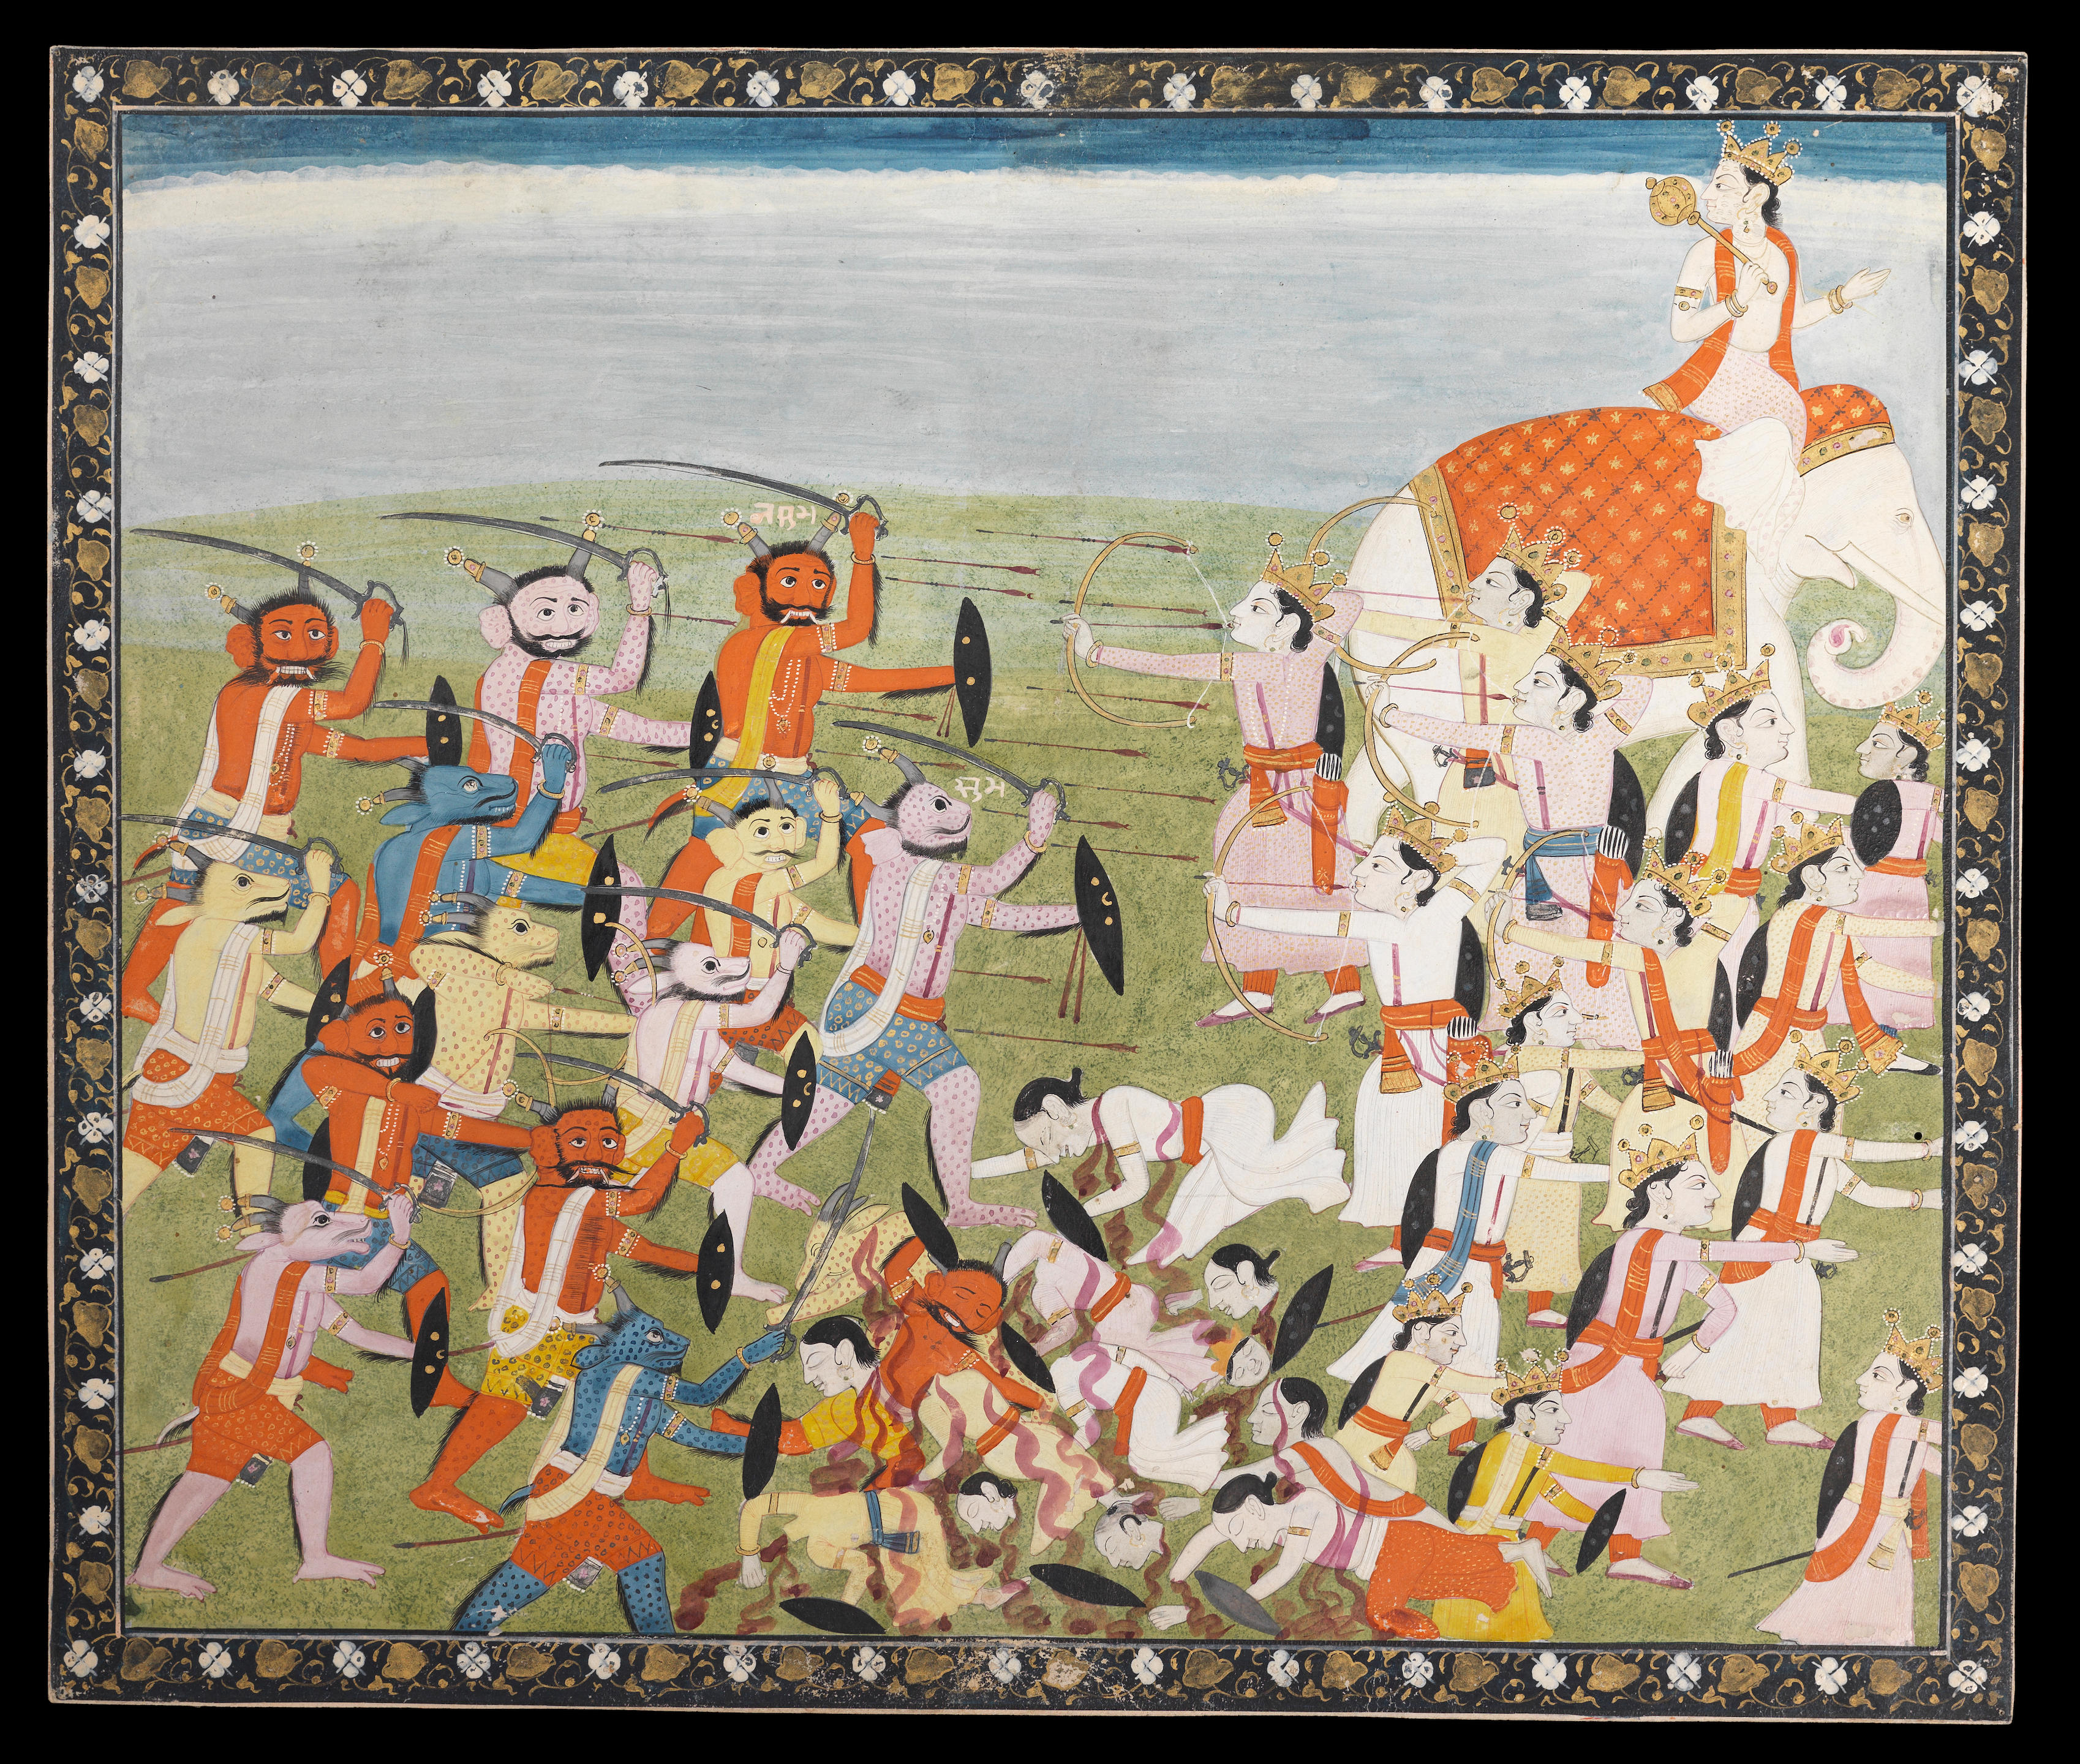 नसुभ
सुभ